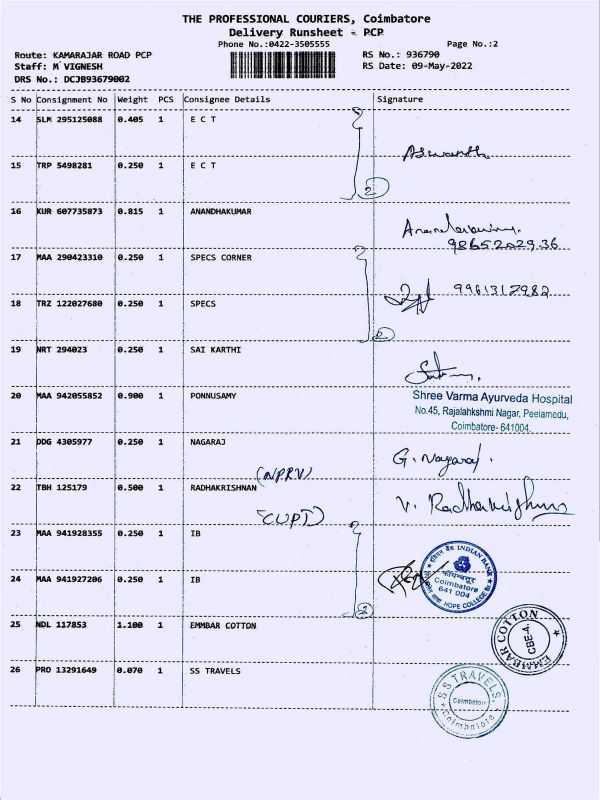 THE PROFESSIONAL COURIERS, Coimbatore
Delivery Runsheet - PCP
Phone No.:0422-3505555 Page No.:2
Route: KAMARAJAR ROAD PCP RS No.: 936790
Staff: M VIGNESH RS Date: 09-May-2022
DRS No.: DCJB93679002
S No Consignment No Weight PCS Consignee Details Signature
14 SLM 295125088 0.405 1 E C T
Aswanth
15 TRP 5498281 0.250 1 E C T
2
16 KUR 607735873 0.815 1 ANANDHAKUMAR
9865202936
17 MAA 290423310 0.250 1 SPECS CORNER
9961312982
18 TRZ 122027680 0.250 1 SPECS
2
19 NRT 294023 0.250 1 SAI KARTHI
20 MAA 942055852 0.900 1 PONNUSAMY
Shree Varma Ayurveda Hospital
No.45, Rajalahkshmi Nagar, Peelamedu,
Coimbatore- 641004.
21 DDG 4305977 0.250 1 NAGARAJ
G. Nagaraj.
(NPRV)
22 TBH 125179 0.500 1 RADHAKRISHNAN
V. Radhakrishnan
(CUPI)
23 MAA 941928355 0.250 1 IB
24 MAA 941927206 0.250 1 IB
INDIAN BANK
Coimbatore
641 004
HOPE COLLEGE Br.
2
25 NDL 117853 1.100 1 EMMBAR COTTON
EMMBAR COTTON
CBE-4.
26 PRO 13291649 0.070 1 SS TRAVELS
SS TRAVELS
Coimbatore
Coimbatore